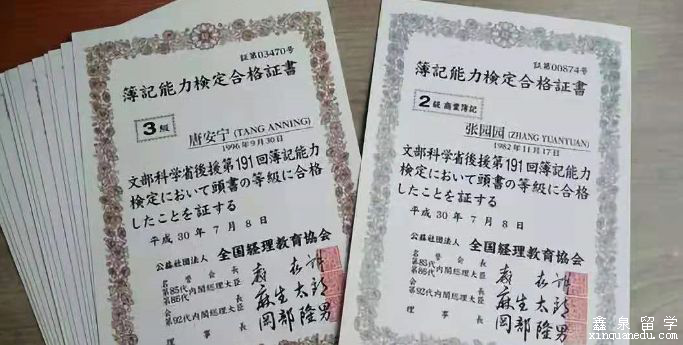 証第03470号
簿記能力検定合格証書
3級
唐安宁(TANG ANNING)
1996年9月30日
文部科学省後援第191回簿記能力
検定において頭書の等級に合格
したことを証する
平成30年7月8日
公益社団法人 全国経理教育協会
名誉会長
第85代内閣総理大臣
第86代
会長
第92代内閣総理大臣 麻生太郎
理事長 岡部隆男
証第00874号
簿記能力検定合格証書
2級 商業簿記
张园园(ZHANG YUANYUAN)
1982年11月17日
文部科学省後援第191回簿記能力
検定において頭書の等級に合格
したことを証する
平成30年7月8日
公益社団法人 全国経理教育協会
名誉会長
第85代内閣総理大臣
第86代
会長
第92代内閣総理大臣 麻生太郎
理事長 岡部隆男
鑫泉留学
xinquanedu.com